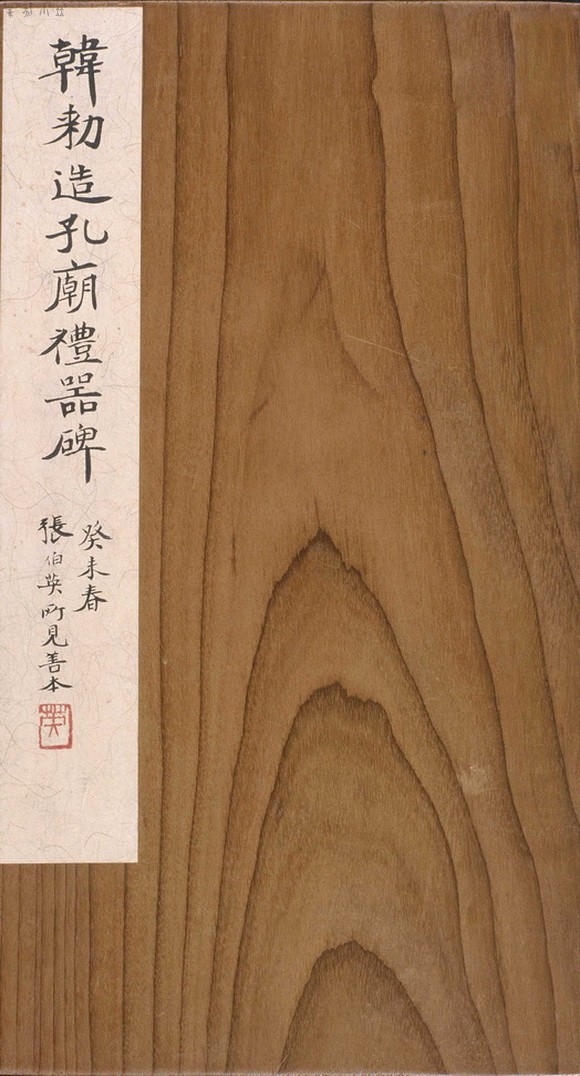 韓勅造孔廟禮器碑
癸未春
張伯英所見善本
英